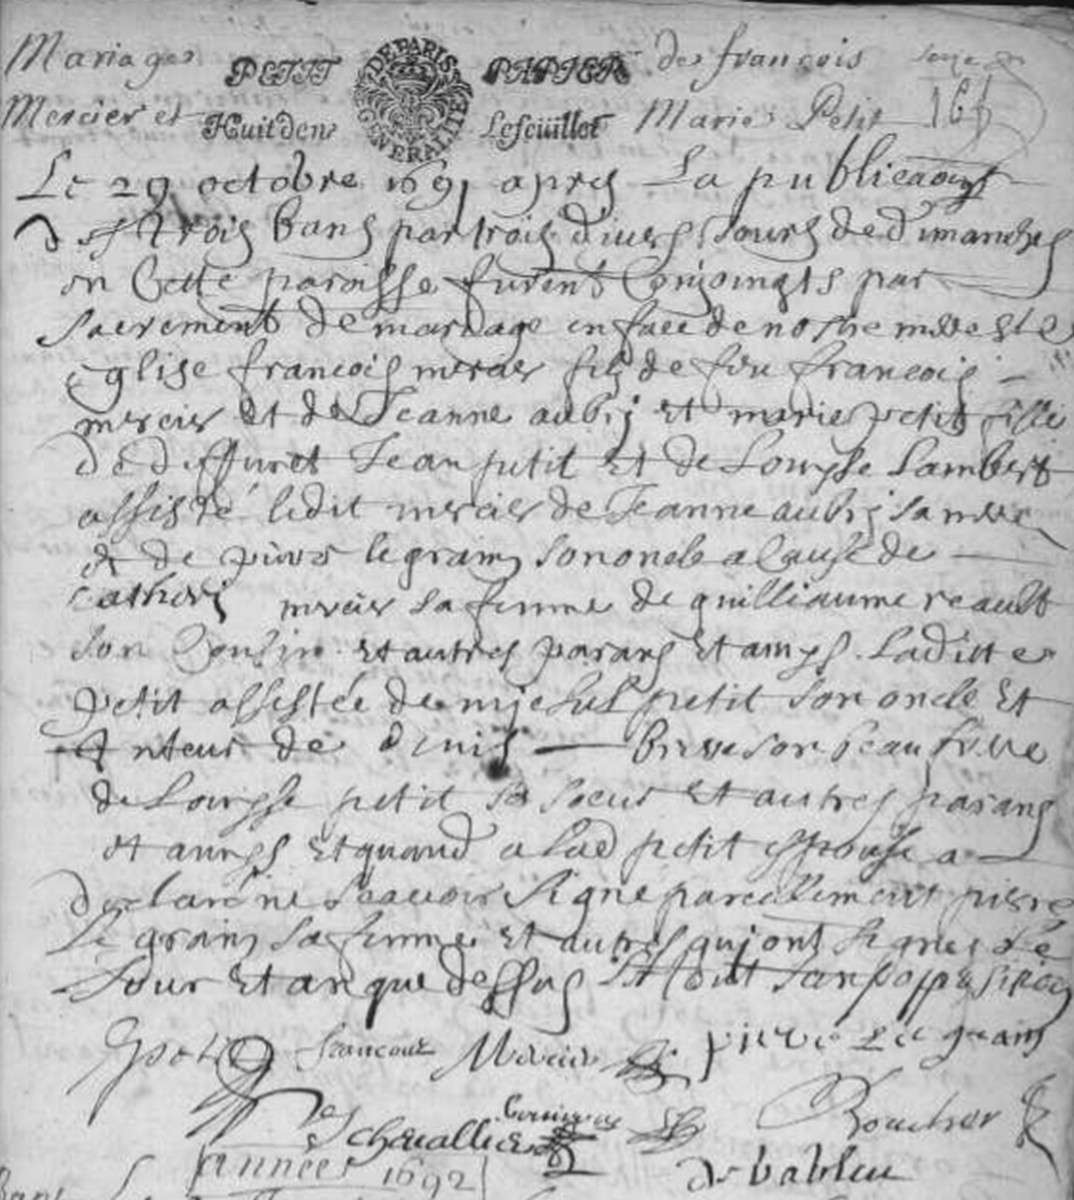 Mariages PETIT PAPIER de françois
Mercier et Huit den.s Lefeüillet Marie Petit 161
DE PARIS GENERALITE
Le 29 octobre 1691 apres La publication
des trois bans par trois divers Jours de dimanches
en Cette paroisse furent Conjoingts par
sacrement de mariage en face de nostre mere ste
Eglise francois mercier fils de feu francois
mercier et de Jeanne aubrj et marie petit fille
de deffunct Jean petit Et de Louysse Lambert
assisté ledit mercier de Jeanne aubrj sa mere
& de pierre legrain son oncle a Cause de
catheri mercier sa femme de guilliaume reault
son Cousin Et autres parans Et amys. Laditte
petit assistée de michel petit son oncle Et
de denis son beau frere
de Louysse petit sa soeur Et autres parans
et amys Et quand a Lad petit espouse a
declaré ne scavoir signé pareillement pierre
Le grain sa femme Et autres qui ont signes Le
Jour Et an que dessus
francois Mercier pierre Le grain
chevallier Boucher
année 1692